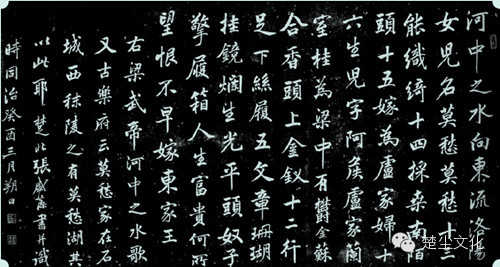 河中之水向東流洛陽
女兒名莫愁莫愁十三
能織綺十四採桑南陌
頭十五嫁為盧家婦十
六生兒字阿侯盧家蘭
室桂為梁中有鬱金蘇
合香頭上金釵十二行
足下絲履五文章珊瑚
挂鏡爛生光平頭奴子
擎履箱人生富貴何所
望恨不早嫁東家王
右梁武帝河中之水歌
又古樂府云莫愁家在石
城西秣陵之有莫愁湖其
以此耶 楚北張盛藻書并識
時同治癸酉三月朔日
楚尘文化